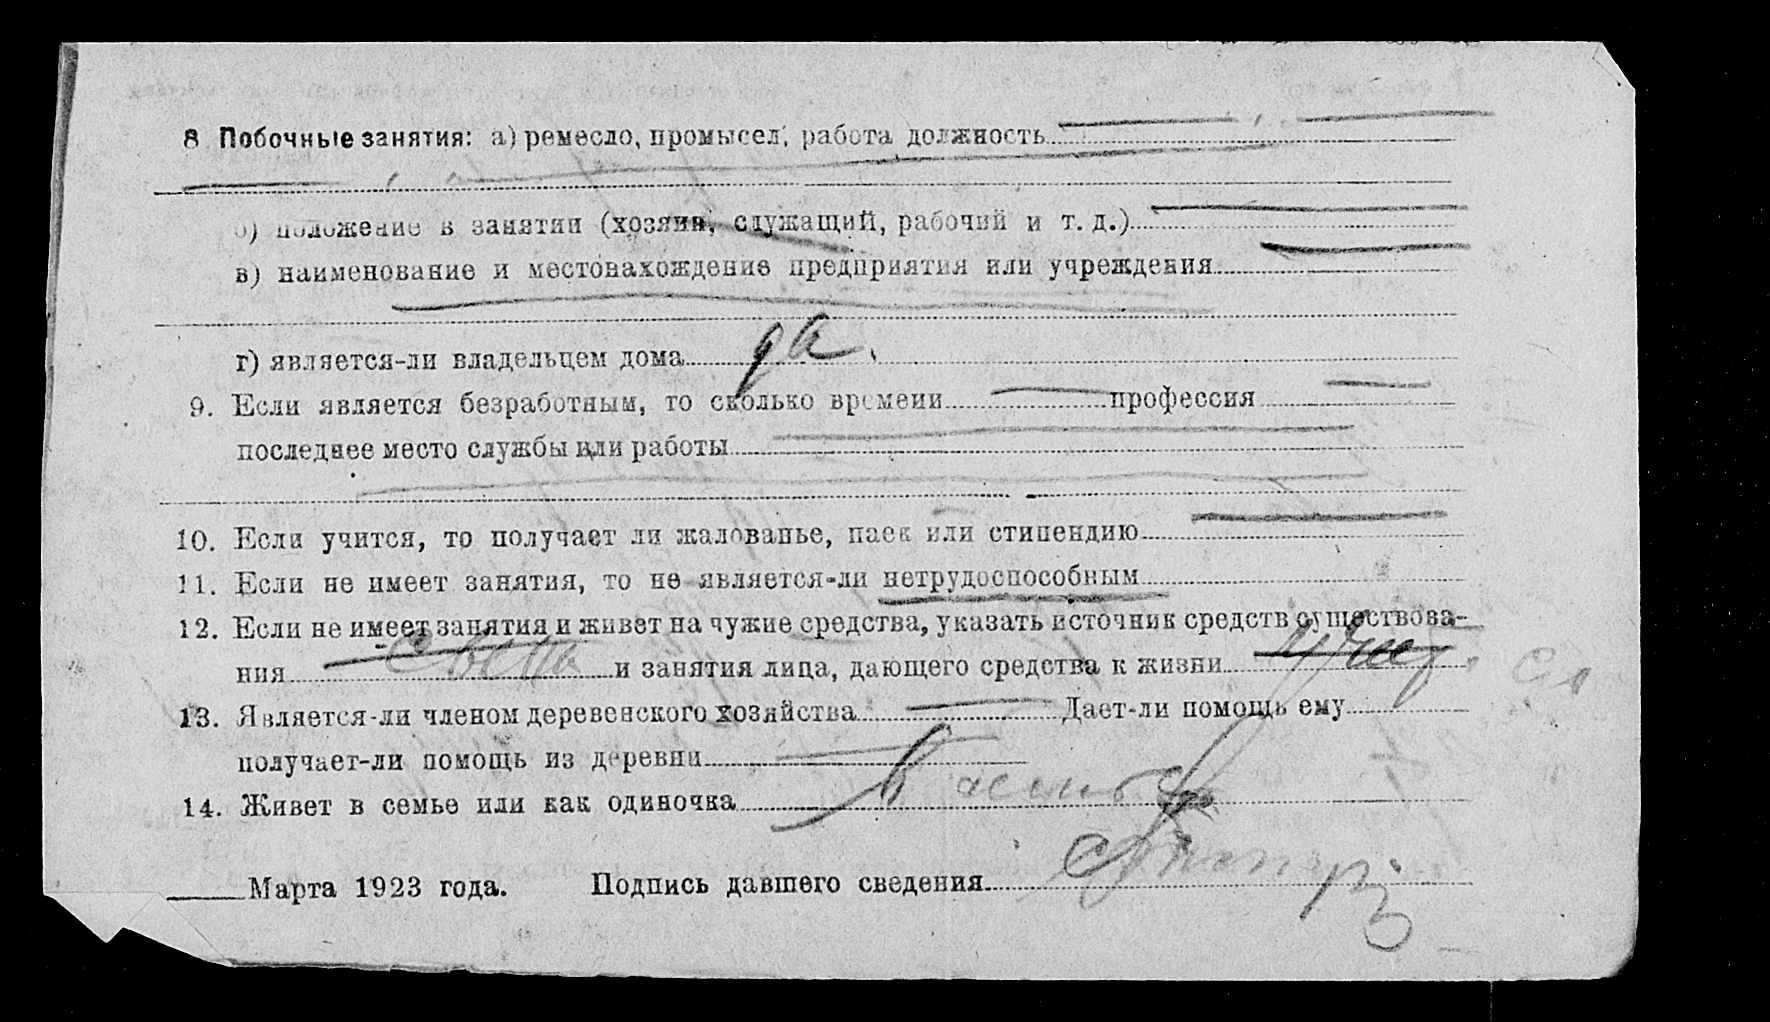 8 Побочные занятия: а) ремесло, промысел, работа должность
б) положение в занятии (хозяин, служащий, рабочий и т. д.)
в) наименование и местонахождение предприятия или учреждения
г) является-ли владельцем дома да.
9. Если является безработным, то сколько времени профессия
последнее место службы или работы
10. Если учится, то получает ли жалованье, паек или стипендию
11. Если не имеет занятия, то не является-ли нетрудоспособным
12. Если не имеет занятия и живет на чужие средства, указать источник средств существова-
ния и занятия лица, дающего средства к жизни
13. Является-ли членом деревенского хозяйства Дает-ли помощь ему
получает-ли помощь из деревни
14. Живет в семье или как одиночка В семье
Марта 1923 года. Подпись давшего сведения